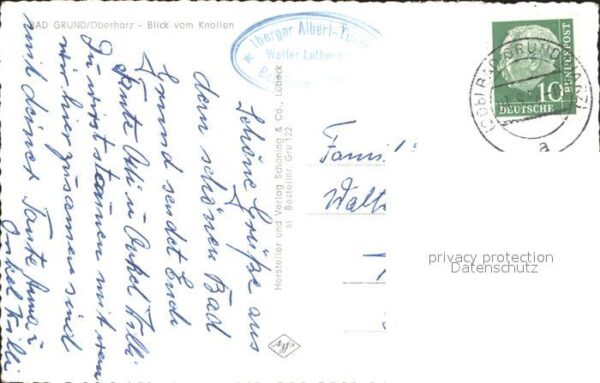 BAD GRUND/Oberharz - Blick vom Knollen
Iberger Albert-Turm
Walter
Schöne Grüße aus
dem schönen Bad
Grund sendet Euch
Tante Otti u. Onkel Willi
Du wirst staunen mit wem
wir hier zusammen sind
mit deiner Tante Anna u
Onkel Willi
Hersteller und Verlag Schöning & Co., Lübeck
Bestellnr. Gru 122
Famili
Walt
BAD GRUND
10
DEUTSCHE
BUNDESPOST
a
privacy protection
Datenschutz